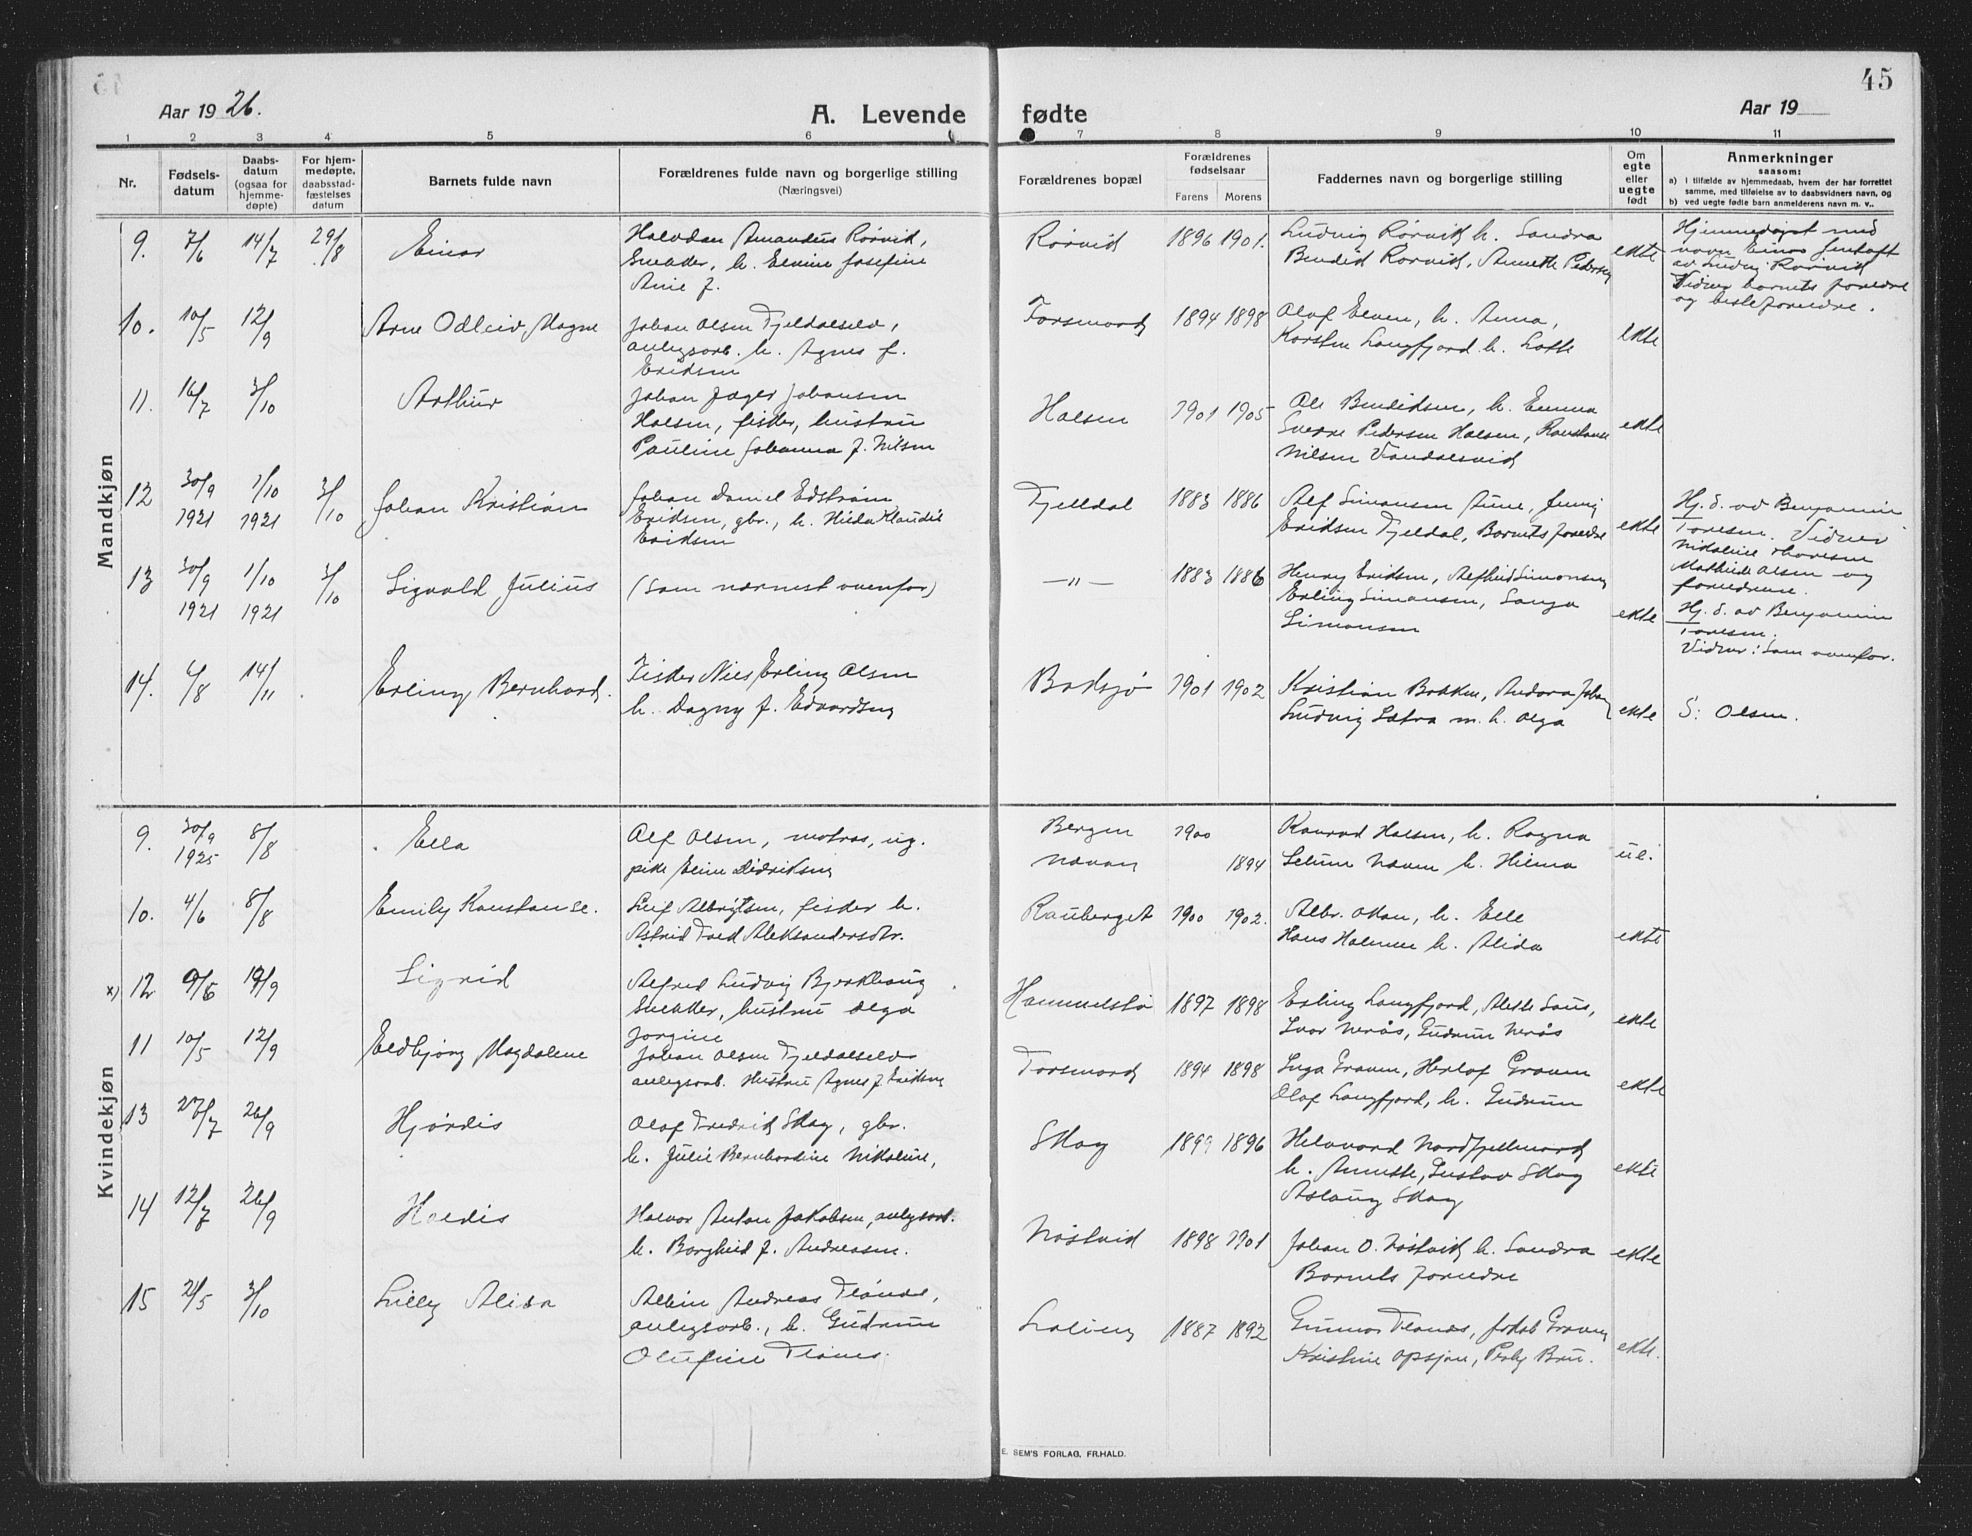 45
Aar 1926.
A. Levende fødte
Aar 19
1 2 3 4 5 6 7 8 9 10 11
Nr.
Fødsels-
datum
Daabs-
datum
(ogsaa for
hjemme-
døpte)
For hjem-
medøpte,
daabsstad-
fæstelses
datum
Barnets fulde navn
Forældrenes fulde navn og borgerlige stilling
(Næringsvei)
Forældrenes bopæl
Forældrenes
fødselsaar
Farens Morens
Faddernes navn og borgerlige stilling
Om
egte
eller
uegte
født
Anmerkninger
saasom:
a) i tilfælde av hjemmedaab, hvem der har forrettet
samme, med tilføielse av to daabsvidners navn, og
b) ved uegte fødte barn anmelderens navn m. v..
Mandkjøn
9. 7/6 14/7 29/8 Einar
Halvdan Amandus Rørvik,
Snekker, h. Elvine Josefine
Ane f.
Rørvik 1896 1901.
Ludvig Rørvik h. Sandra
Bendik Rørvik, Annette Pedersen
ekte
Hjemmedøpt med
navn Einar
av Ludvig Rørvik
Vidner barnets foreldre
og besteforeldre.
10. 10/5 12/9 Arne Odleiv Magne
Johan Olsen Fjeldalselv,
anlegsarb. h. Agnes f.
Eriksen
Forsmark 1894 1898
Olaf Elven, h. Anna,
Karsten Langfjord h. Lotte
ekte
11. 16/7 3/10 Arthur
Johan Jæger Johansen
Halsen, fisker, hustru
Pauline Johanna f. Nilsen
Halsen 1901 1905
Ole Bendiksen, h. Emma
Sverre Pedersen Halsen, Konstanse
Nilsen Vandalsvik
ekte
12 30/9 1/10 3/10 Johan Kristian
1921 1921
Johan Daniel Edstrøm
Eriksen, gbr., h. Hilda Klaudie
Eriksen
Fjelldal 1883 1886
Alf Simonsen Aune, Jenny
Eriksen Fjelldal, Barnets foreldre
ekte
Hj. d. av Benjamin
Toresen. Vidner
Nikoline Thoresen
Mathilde Olsen og
foreldrene.
13 30/9 1/10 3/10 Sigvald Julius
1921 1921
(Som nærmest ovenfor)
—"— 1883 1886
Henry Eriksen, Alfhild Simonsen
Erling Simonsen, Sanga
Simonsen
ekte
Hj. d. av Benjamin
Toresen.
Vidner: Som ovenfor.
14. 6/8 14/11 Erling Bernhard.
Fisker Nils Erling Olsen
h. Dagny f. Edvardsen
Baksjø 1901 1902
Kristian Bakken, Andora
Ludvig Sætra m. h. Olga
ekte
S: Olsen.
Kvindekjøn
9. 30/9 8/8 Ella
1925
Alf Olsen, matros, ug.
pike Eline Didriksen
Bergen 1900
Naven 1894
Konrad Halsen, h. Ragna
Selum Naven h. Hilma
u.
10. 4/6 8/8 Emily Konstanse.
Leif Albrigtsen, fisker h.
Astrid Aleksandersdtr.
Rauberget 1900 1902.
Albr. Okan, h. Elle
Hans Halmen h. Alida
ekte
x) 12 9/5 19/9 Sigrid
Alfred Ludvig Bjerkhaug
Snekker, hustru Olga
Jorgine
Hammelstø 1897 1898
Erling Langfjord, Alette Saus,
Ivar Nerås, Gudrun Nerås
ekte
11 10/5 12/9 Eldbjørg Magdalene
Johan Olsen Fjeldalselv
anlegsarb. Hustru Agnes f. Eriksen
Forsmark 1894 1898
Inga Graven, Herlof Graven
Olaf Langfjord, h. Gudrun
ekte
13 27/7 26/9 Hjørdis
Olaf Fredrik Skog, gbr.
h. Julie Bernhardine Nikoline,
Skog 1899 1896
Helavard Nordfjellmark
h. Annette, Gustav Skog
Aslaug Skog
ekte
14 12/7 26/9 Haldis
Halvor Anton Jakobsen, anlegsarb.
h. Borghild f. Andreassen.
Nøstvik 1898 1901
Johan O. Nøstvik h. Sandra
Barnets foreldre
ekte
15 21/5 3/10 Lilly Alida
Albin Andreas Flønes,
anlegsarb., h. Gudrun
Olufine Flønes.
Saling 1887 1892
Gunnar Flønes, Jakob Graven
Kristine Opsjøn, Perly Bru.
ekte.
E. SEM'S FORLAG, FR.HALD.